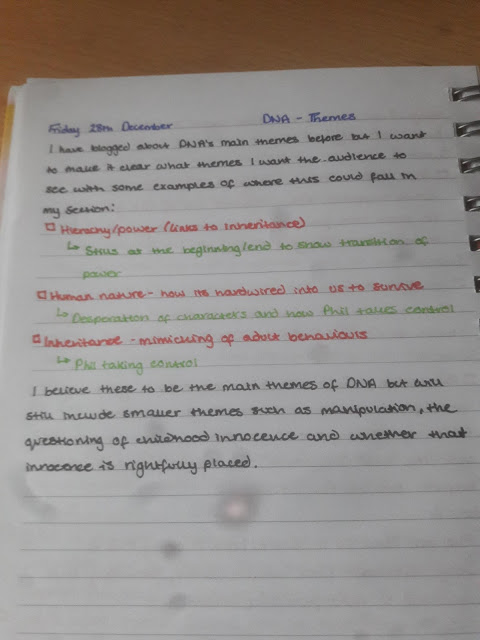 Friday 28th December DNA - Themes
I have blogged about DNA's main themes before but I want
to make it clear what themes I want the audience to
see with some examples of where this could fall in
my section:
Hierachy/power (links to inheritance)
↳ Stills at the beginning/end to show transition of
power
Human nature - how its hardwired into us to survive
↳ Desporation of characters and how Phil takes control
Inheritance - mimicking of adult behaviours
↳ Phil taking control
I believe these to be the main themes of DNA but will
still include smaller themes such as manipulation, the
questioning of childhood innocence and whether that
innocence is rightfully placed.